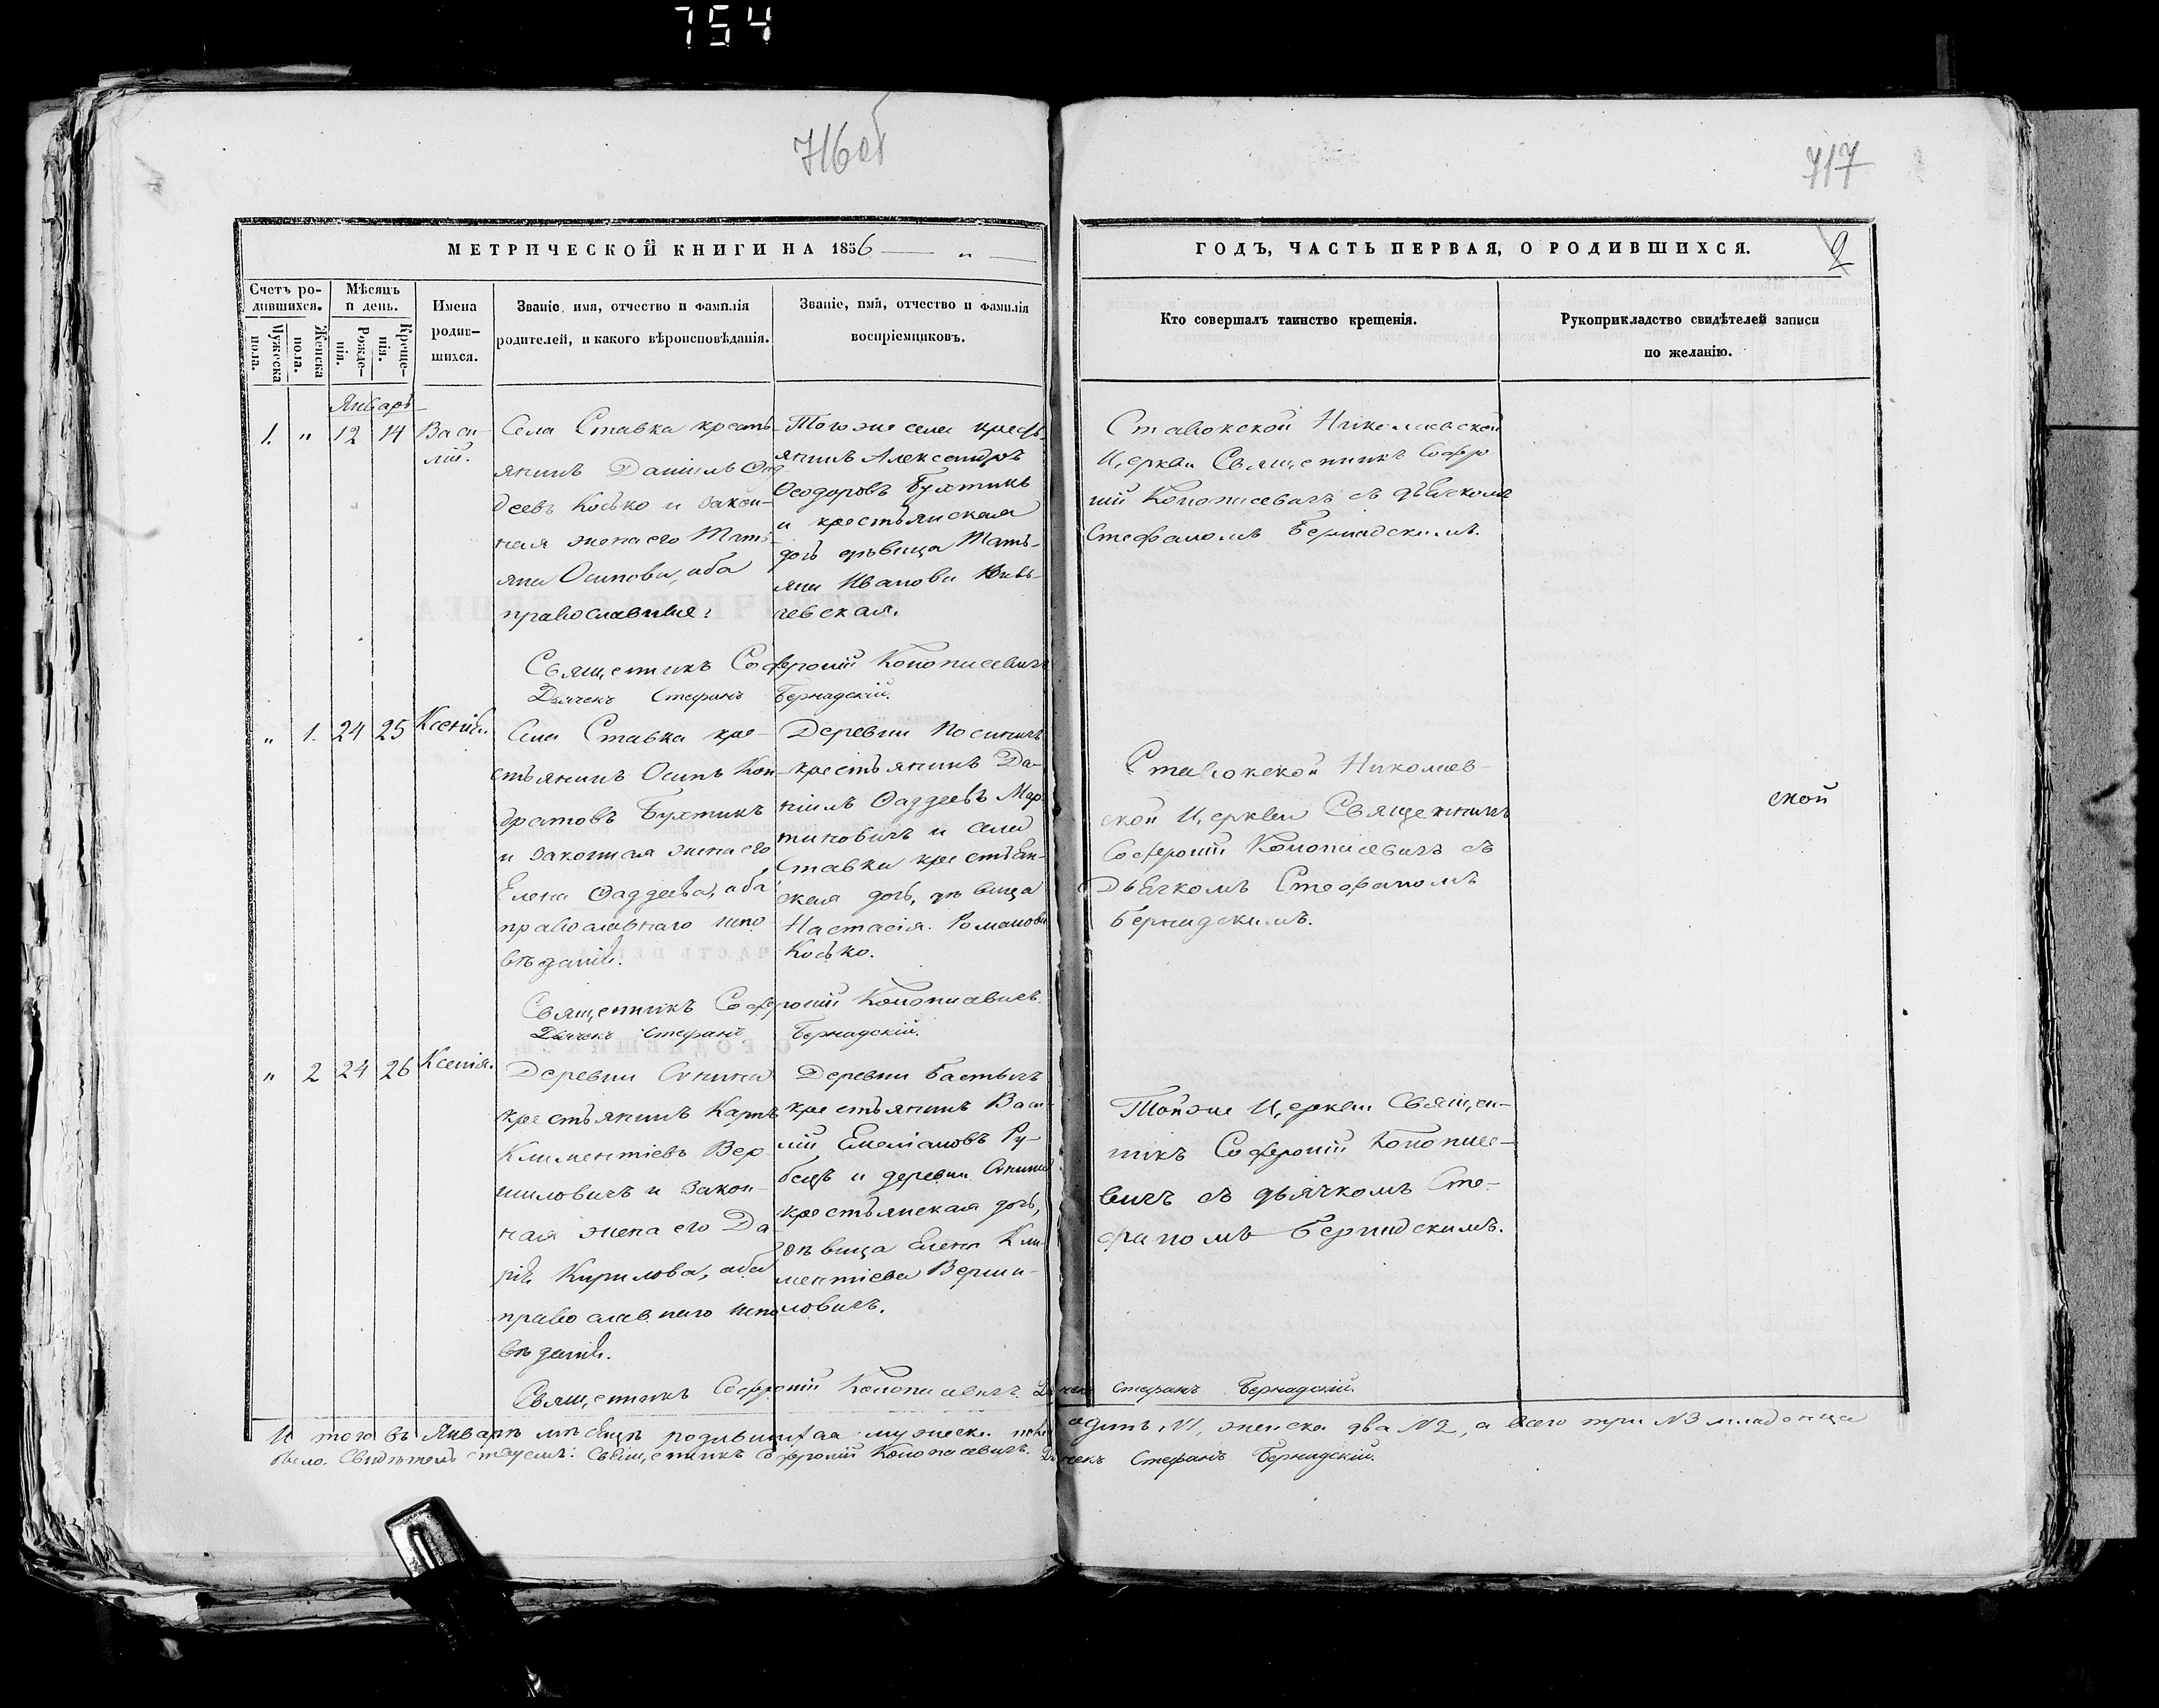 754
716об
717
МЕТРИЧЕСКОЙ КНИГИ НА 1856
ГОДЪ, ЧАСТЬ ПЕРВАЯ, О РОДИВШИХСЯ.
2
Счетъ ро-
дившихся.
Мужеска
пола.
Женска
пола.
Мѣсяцъ
и день.
Рожде-
нія.
Креще-
нія.
Имена
родив-
шихся.
Званіе, имя, отчество и фамилія
родителей, и какого вѣроисповѣданія.
Званіе, имя, отчество и фамилія
воспріемниковъ.
Кто совершалъ таинство крещенія.
Рукоприкладство свидѣтелей записи
по желанію.
Январь
1. " 12 14
Васи-
лій.
Села Ставка кресть-
янинъ Даніилъ Фад-
деевъ Косько и закон-
ная жена его Тать-
яна Осипова, оба
православные.
Тогоже села кресть-
янинъ Александръ
Ѳеодоровъ Бухтикъ
и крестьянская
дочь дѣвица Тать-
яна Иванова
Ставокской Николаевской
Церкви Священникъ Софро
ній Конописевичъ съ дьячкомъ
Стефаномъ Бернадскимъ.
Священникъ Софроній Конописевичъ
Дьячекъ Стефанъ Бернадскій.
" 1. 24 25
Ксенія.
Села Ставка кре-
стьянинъ Осипъ Кон-
дратовъ Бухтикъ
и законная жена его
Елена Фаддеева, оба
православнаго испо-
вѣданія.
Деревни Посиничъ
крестьянинъ Да-
ніилъ Фаддеевъ Мар-
тиновичъ и села
Ставка крестьян-
ская дочь, дѣвица
Настасія Романова
Косько.
Ставокской Николаев-
ской Церкви Священникъ
Софроній Конописевичъ съ
Дьячкомъ Стефаномъ
Бернадскимъ.
ской
Священникъ Софроній Конописевичъ.
Дьячекъ Стефанъ Бернадскій.
" 2 24 26
Ксенія.
Деревни
крестьянинъ Карпъ
Климентіевъ Вер
шиловичъ и закон-
ная жена его Да
рія Кирилова, оба
православнаго испо
вѣданія.
Деревни
крестьянинъ Васи-
лій Емеліановъ Ру-
бецъ и деревни
крестьянская дочь,
дѣвица Елена Кли-
ментіева Верши-
ловичъ.
Тойже Церкви Священ-
никъ Софроній Конописе-
вичъ съ дьячкомъ Сте-
фаномъ Бернадскимъ.
Священникъ Софроній Конописевичъ. Дьячекъ Стефанъ Бернадскій.
И того въ Январѣ мѣсяцѣ родившихся мужеска пола одинъ N1, женска два N2, а всего три N3 младенца
было. Свидѣтельствуемъ: Священникъ Софроній Конописевичъ. Дьячекъ Стефанъ Бернадскій.